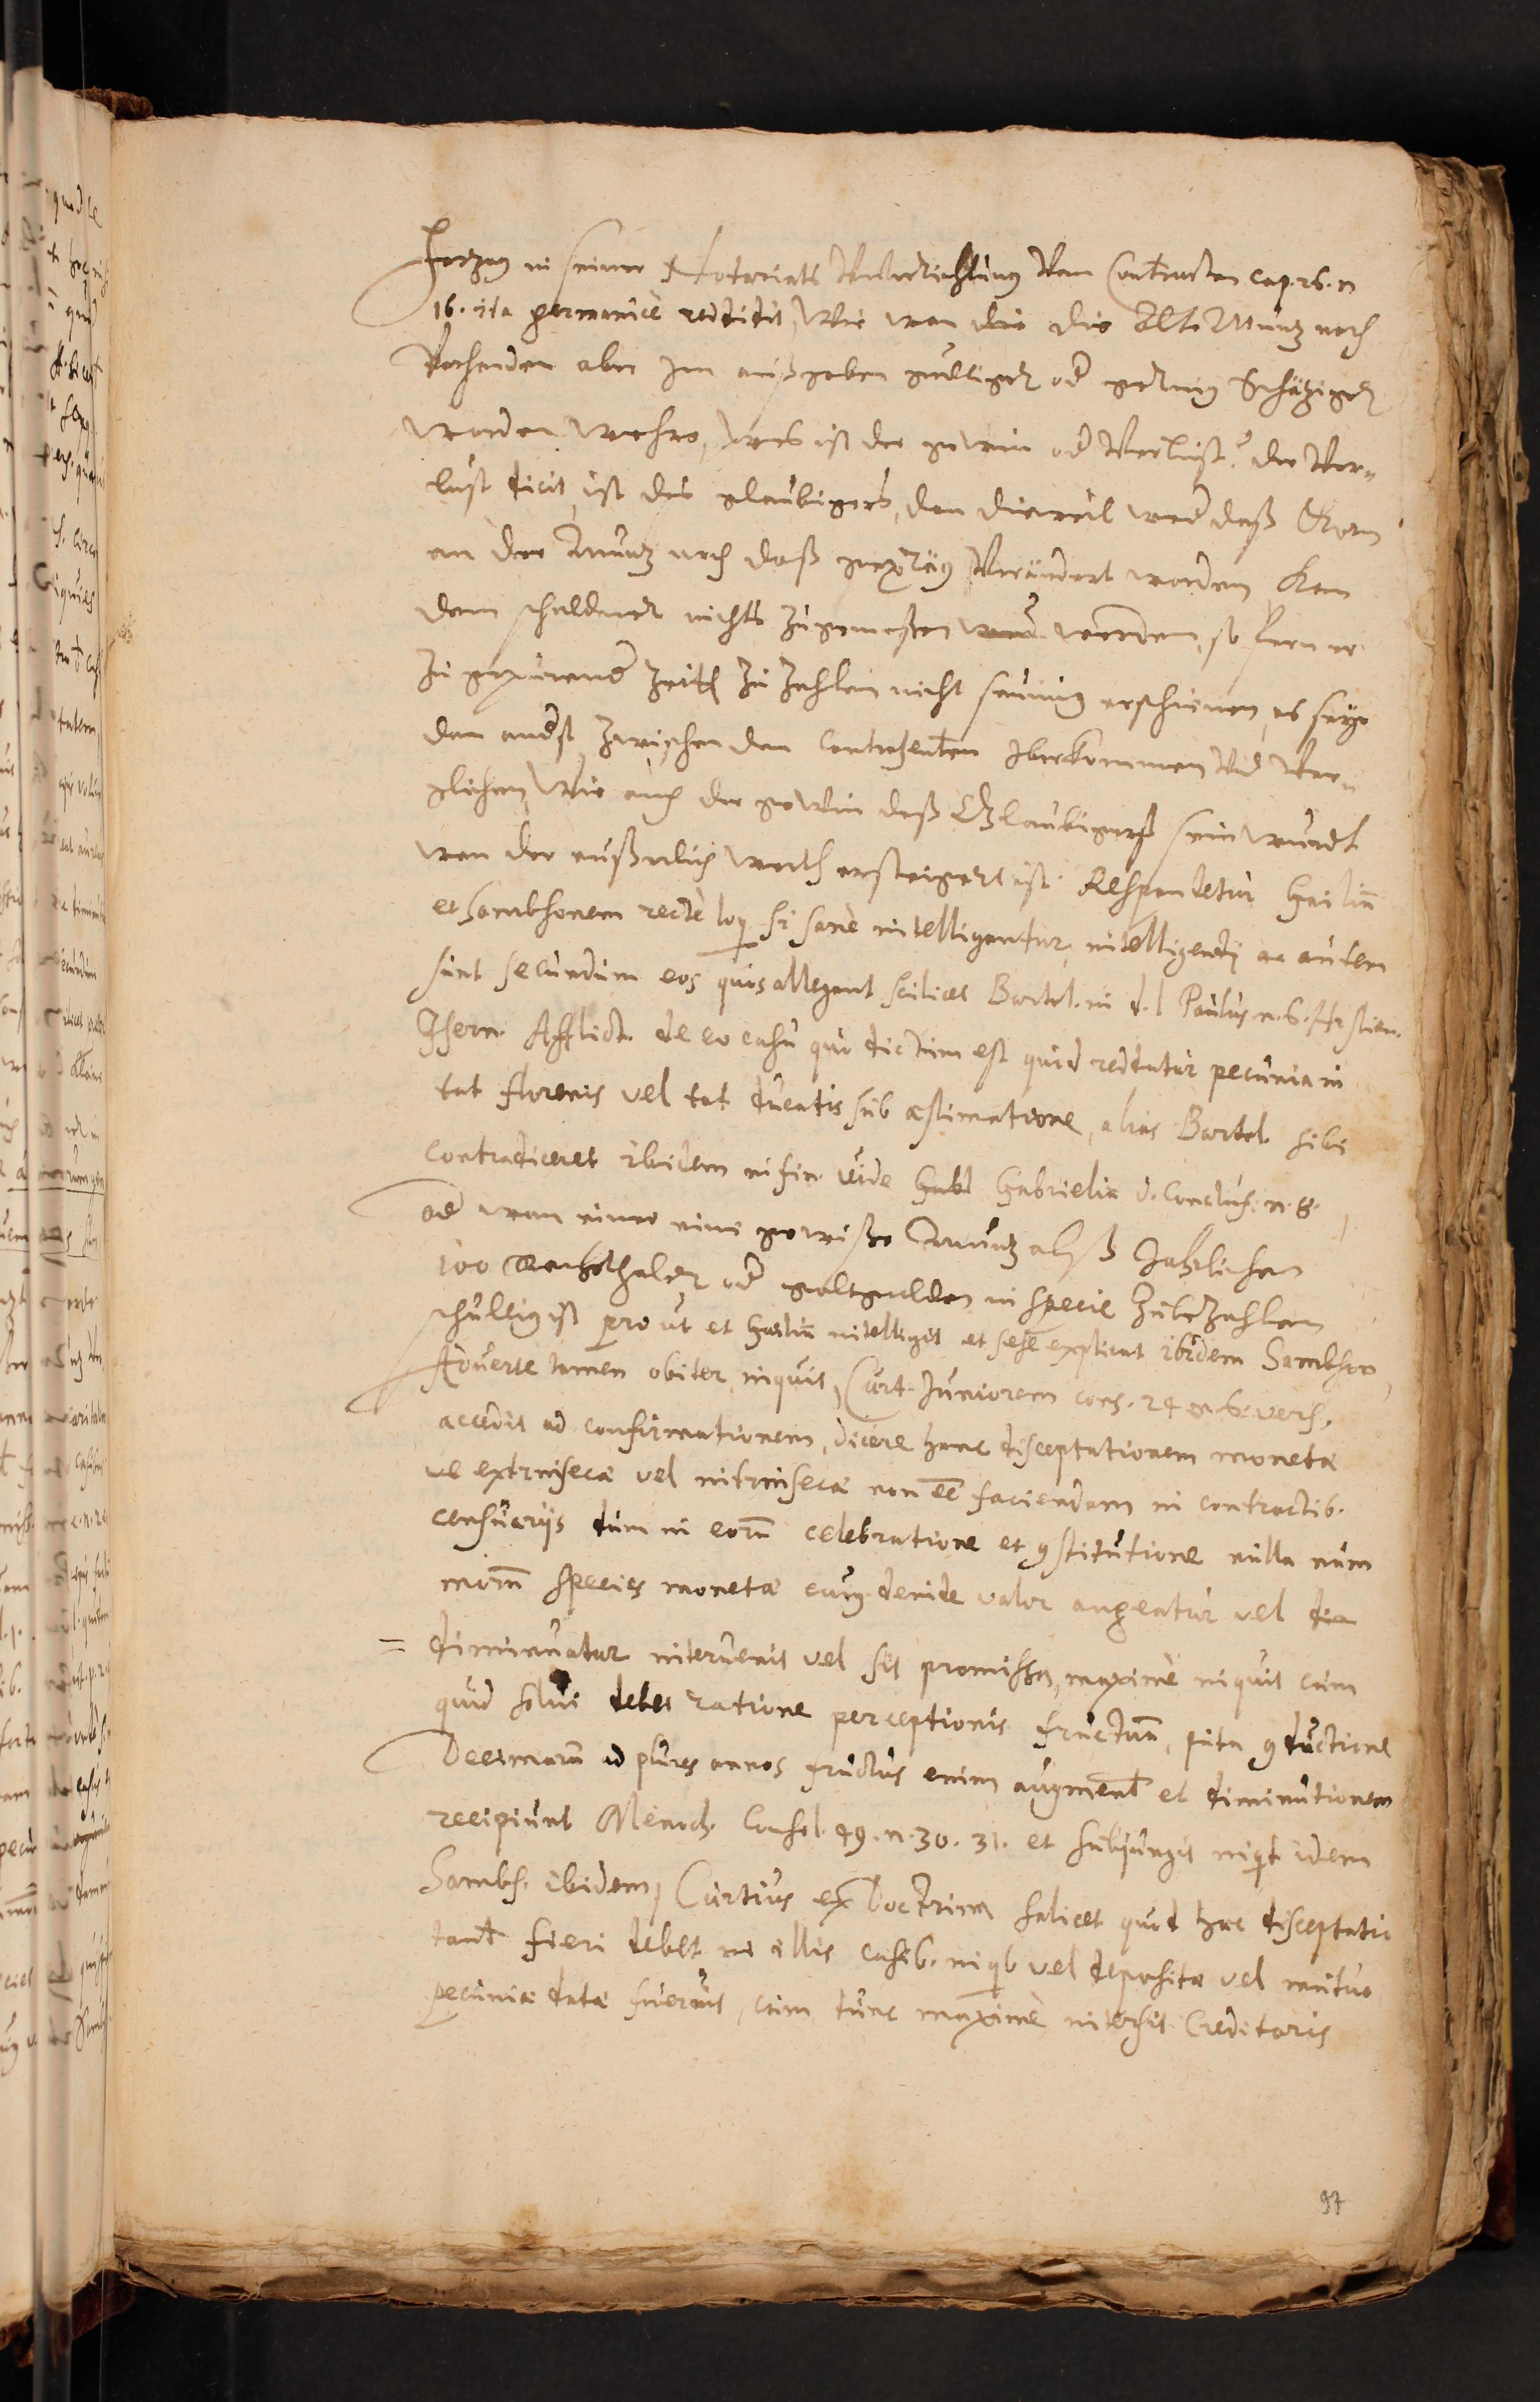 Hertzog in seiner Notariats Underrichtung Von Contracten cap. 26. n
16. ita germanice reddidit, Wie wan die die Alte Müntz noch
Vorhanden aber Im außgeben gultiger od gering Schätziger
worden wehre, wes ist der gewin od Verlust? der Ver=
lust dicit, ist des glaubigers, dan dieweil wed daß Korn
an der Muntz noch daß gepräg Verändert worden kan
dem schuldner nichts zugemeßen werden, so fern er
zu gepurend Zeitt zu Zahlen nicht saumig erschienen, es seye
dan andst zwischen den Contrahenten Iberkommen Vnd Ver=
glichen, Wie auch der gewin deß Glaubigerß sein wurdt
wan der eußerlich werth ersteigert ist. Respondetur Gailiũ
et Sambsonem recte loq si sane intelligantur, intelligendj autem
sunt secundum eos quos allegant scilicet Bartol. in d. l Paulus n. 6.
Isern. Afflict. de eo casu quo dictum est quod reddatur pecunia in
tot florenis vel tot ducatis sub æstimatione, alias Bartol. sibi
contradiceret ibidem in fin. vide Gabrielia d. Conclus. n. 8.
od wan einer eine gewiße Muntz alß Jahrlichen
100 Reichsthaler od goltgulden in specie Zubezahlen
schultig ist prout et Gailiũ intelligit et sese explicat ibidem Sambson
Adverte tamen obiter, inquit, Curt. Juniorem cons. 24 n. 6. vers.
accedit ad confirmationem, dicere hanc disceptationem monetæ
ve extrinsecæ vel intrinsecæ non eẽ faciendam in contractib.
censuarijs dum in eorũ celebratione et 9stitutione nulla num
morũ species monetæ cuiq deinde valor augeatur vel dim
= diminuatur intervenit vel sit promissa, maxime inquit cum
quid solui debet ratione perceptionis fructuũ, puta 9ductione
Decimarũ ad plures annos fructus enim augment et diminutionem
recipiunt Menoch. Consil. 49. n. 30. 31. et subjungit inqt idem
Sambs. ibidem, Curtius ex Doctrina Salicet quod hæc disceptatio
tant fieri debet in illis casib. in qb vel deposita vel mutuo
pecuniæ datæ fuerint, cum tunc maxime intersit Creditoris
97